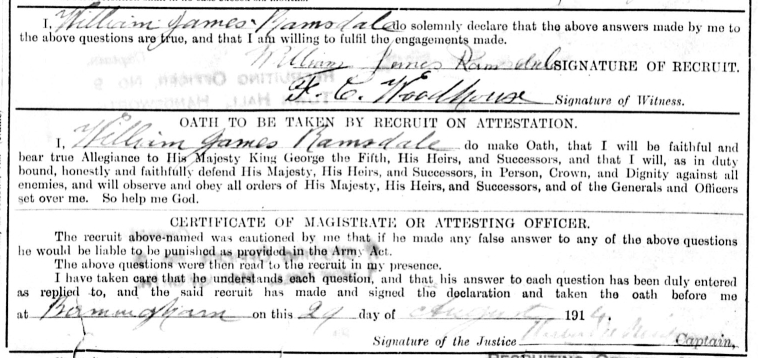 I, William James Ramsdale do solemnly declare that the above answers made by me to
the above questions are true, and that I am willing to fulfil the engagements made.
William James Ramsdale SIGNATURE OF RECRUIT.
F. C. Woodhouse Signature of Witness.
OATH TO BE TAKEN BY RECRUIT ON ATTESTATION.
I, William James Ramsdale do make Oath, that I will be faithful and
bear true Allegiance to His Majesty King George the Fifth, His Heirs, and Successors, and that I will, as in duty
bound, honestly and faithfully defend His Majesty, His Heirs, and Successors, in Person, Crown, and Dignity against all
enemies, and will observe and obey all orders of His Majesty, His Heirs, and Successors, and of the Generals and Officers
set over me. So help me God.
CERTIFICATE OF MAGISTRATE OR ATTESTING OFFICER.
The recruit above-named was cautioned by me that if he made any false answer to any of the above questions
he would be liable to be punished as provided in the Army Act.
The above questions were then read to the recruit in my presence.
I have taken care that he understands each question, and that his answer to each question has been duly entered
as replied to, and the said recruit has made and signed the declaration and taken the oath before me
at Birmingham on this 29 day of August 1914.
Signature of the Justice Captain,